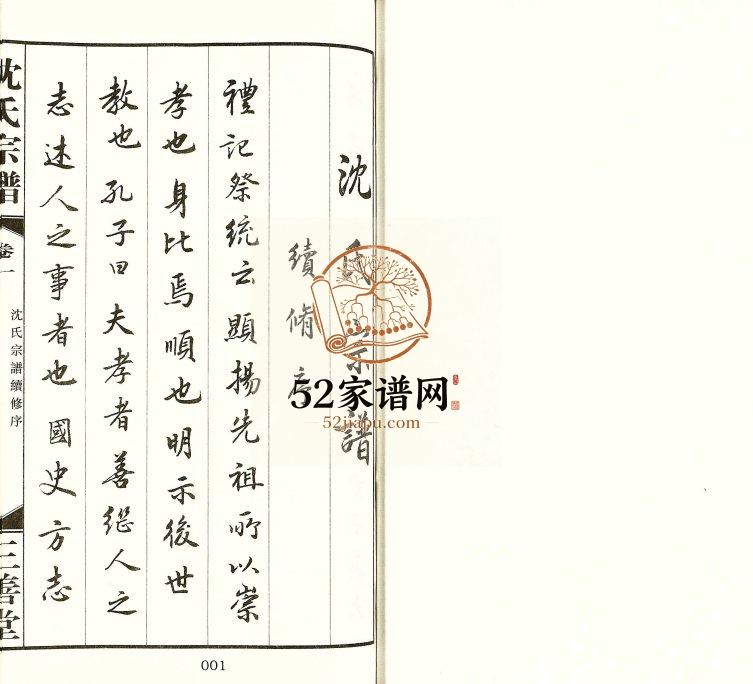 沈氏宗譜
續脩序
禮記祭統云顯揚先祖所以崇
孝也身比焉順也明示後世
教也孔子曰夫孝者善繼人之
志述人之事者也國史方志
沈氏宗譜
卷一
沈氏宗譜續修序
三善堂
001
52家谱网
52jiapu.com